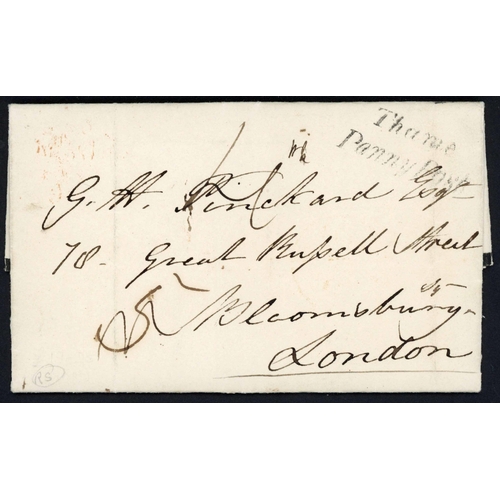 Thame
Penny Post
G. H. Pinckard Esqr
78 - Great Russell Street
Bloomsbury -
London
RS